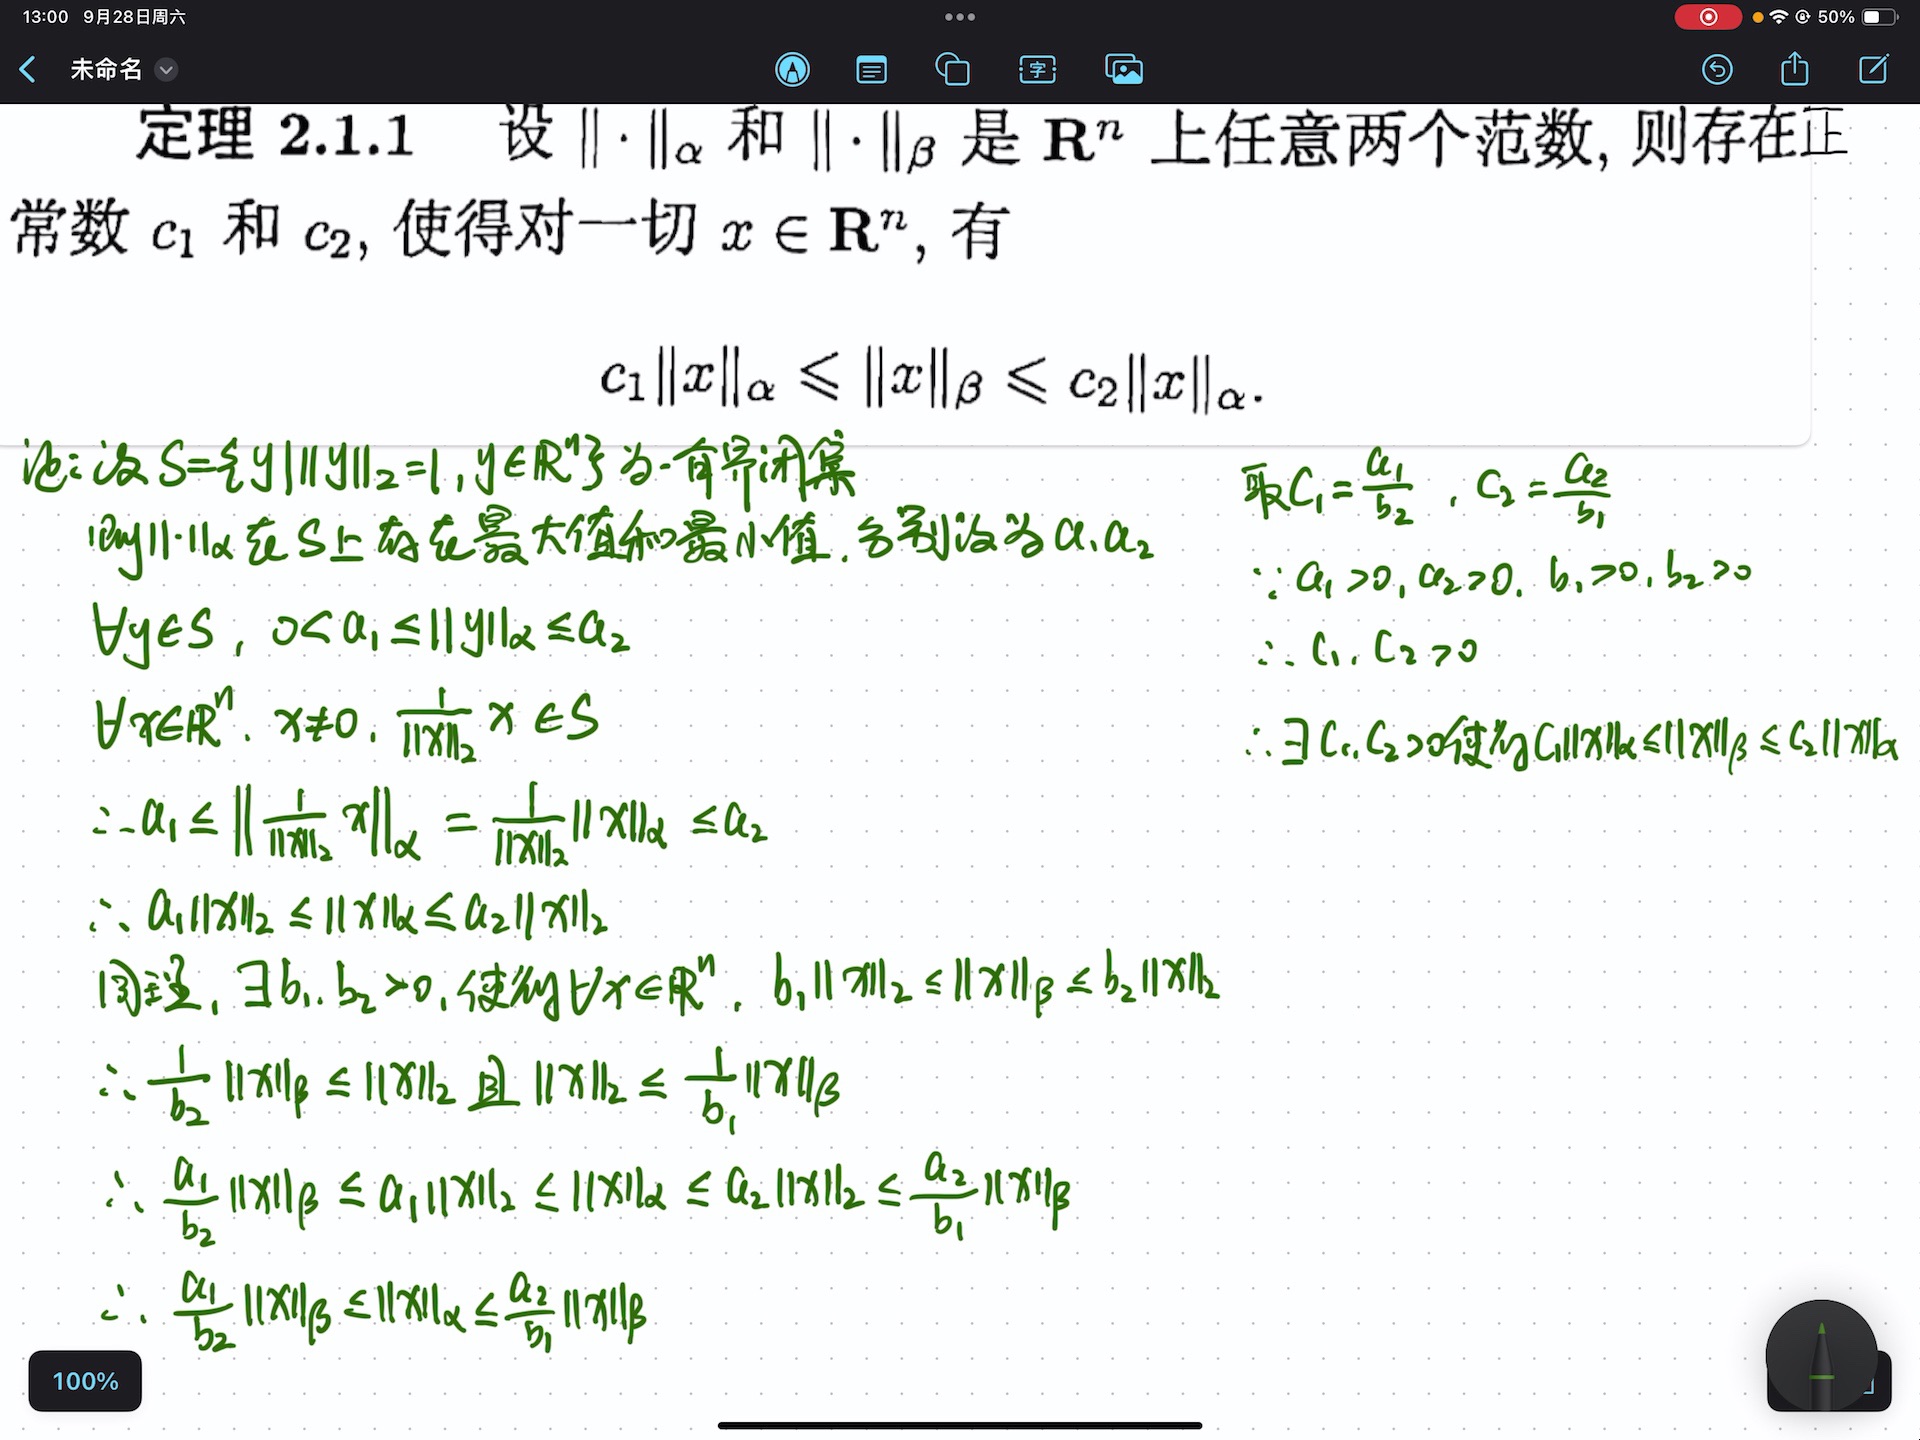 13:00 9月28日周六
50%
未命名
字
定理 2.1.1 设 ‖·‖α 和 ‖·‖β 是 Rⁿ 上任意两个范数, 则存在正
常数 c₁ 和 c₂, 使得对一切 x ∈ Rⁿ, 有
c₁‖x‖α ⩽ ‖x‖β ⩽ c₂‖x‖α.
证:设 S={y|‖y‖₂=1, y∈ℝⁿ}为一有界闭集
则‖·‖α在S上存在最大值和最小值,分别设为a₁a₂
∀y∈S, 0<a₁≤‖y‖α≤a₂
∀x∈ℝⁿ, x≠0, 1/‖x‖₂ x ∈S
∴a₁≤‖1/‖x‖₂ x‖α = 1/‖x‖₂ ‖x‖α ≤a₂
∴ a₁‖x‖₂≤‖x‖α≤a₂‖x‖₂
同理, ∃b₁, b₂>0, 使得∀x∈ℝⁿ, b₁‖x‖₂≤‖x‖β≤b₂‖x‖₂
∴ 1/b₂ ‖x‖β≤‖x‖₂ 且 ‖x‖₂≤ 1/b₁ ‖x‖β
∴ a₁/b₂ ‖x‖β≤a₁‖x‖₂≤‖x‖α≤a₂‖x‖₂≤ a₂/b₁ ‖x‖β
∴ a₁/b₂ ‖x‖β≤‖x‖α≤ a₂/b₁ ‖x‖β
取C₁= a₁/b₂ , C₂= a₂/b₁
∵ a₁>0, a₂>0, b₁>0, b₂>0
∴ C₁, C₂>0
∴∃C₁, C₂>0使得C₁‖x‖α≤‖x‖β≤C₂‖x‖α
100%